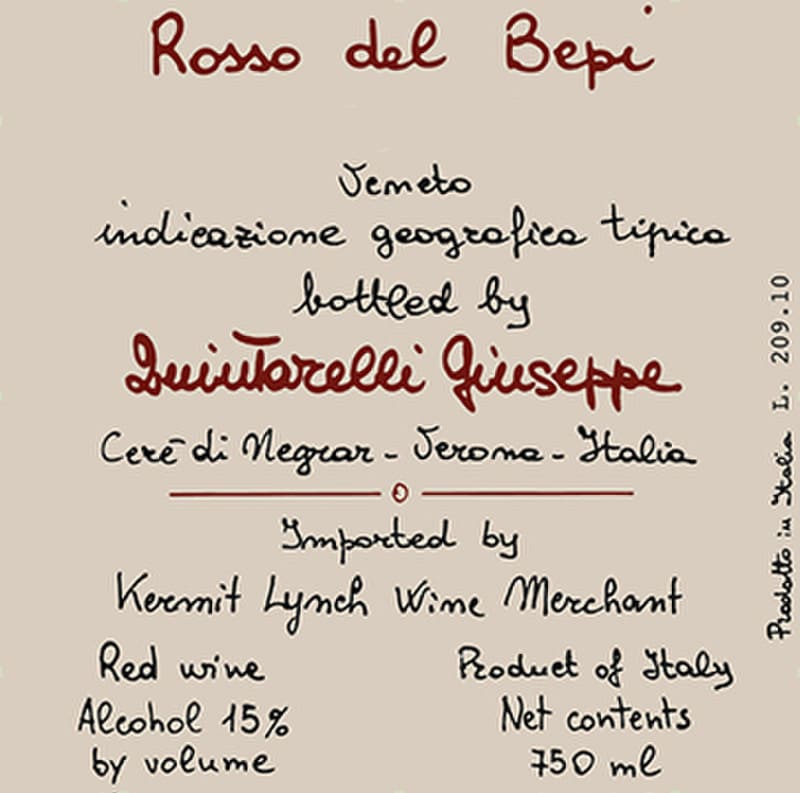 Rosso del Bepi
Veneto
indicazione geografica tipica
bottled by
Quintarelli Giuseppe
Cerè di Negrar - Verona - Italia
Imported by
Kermit Lynch Wine Merchant
Red wine
Alcohol 15%
by volume
Product of Italy
Net contents
750 ml
Prodotto in Italia L. 209.10